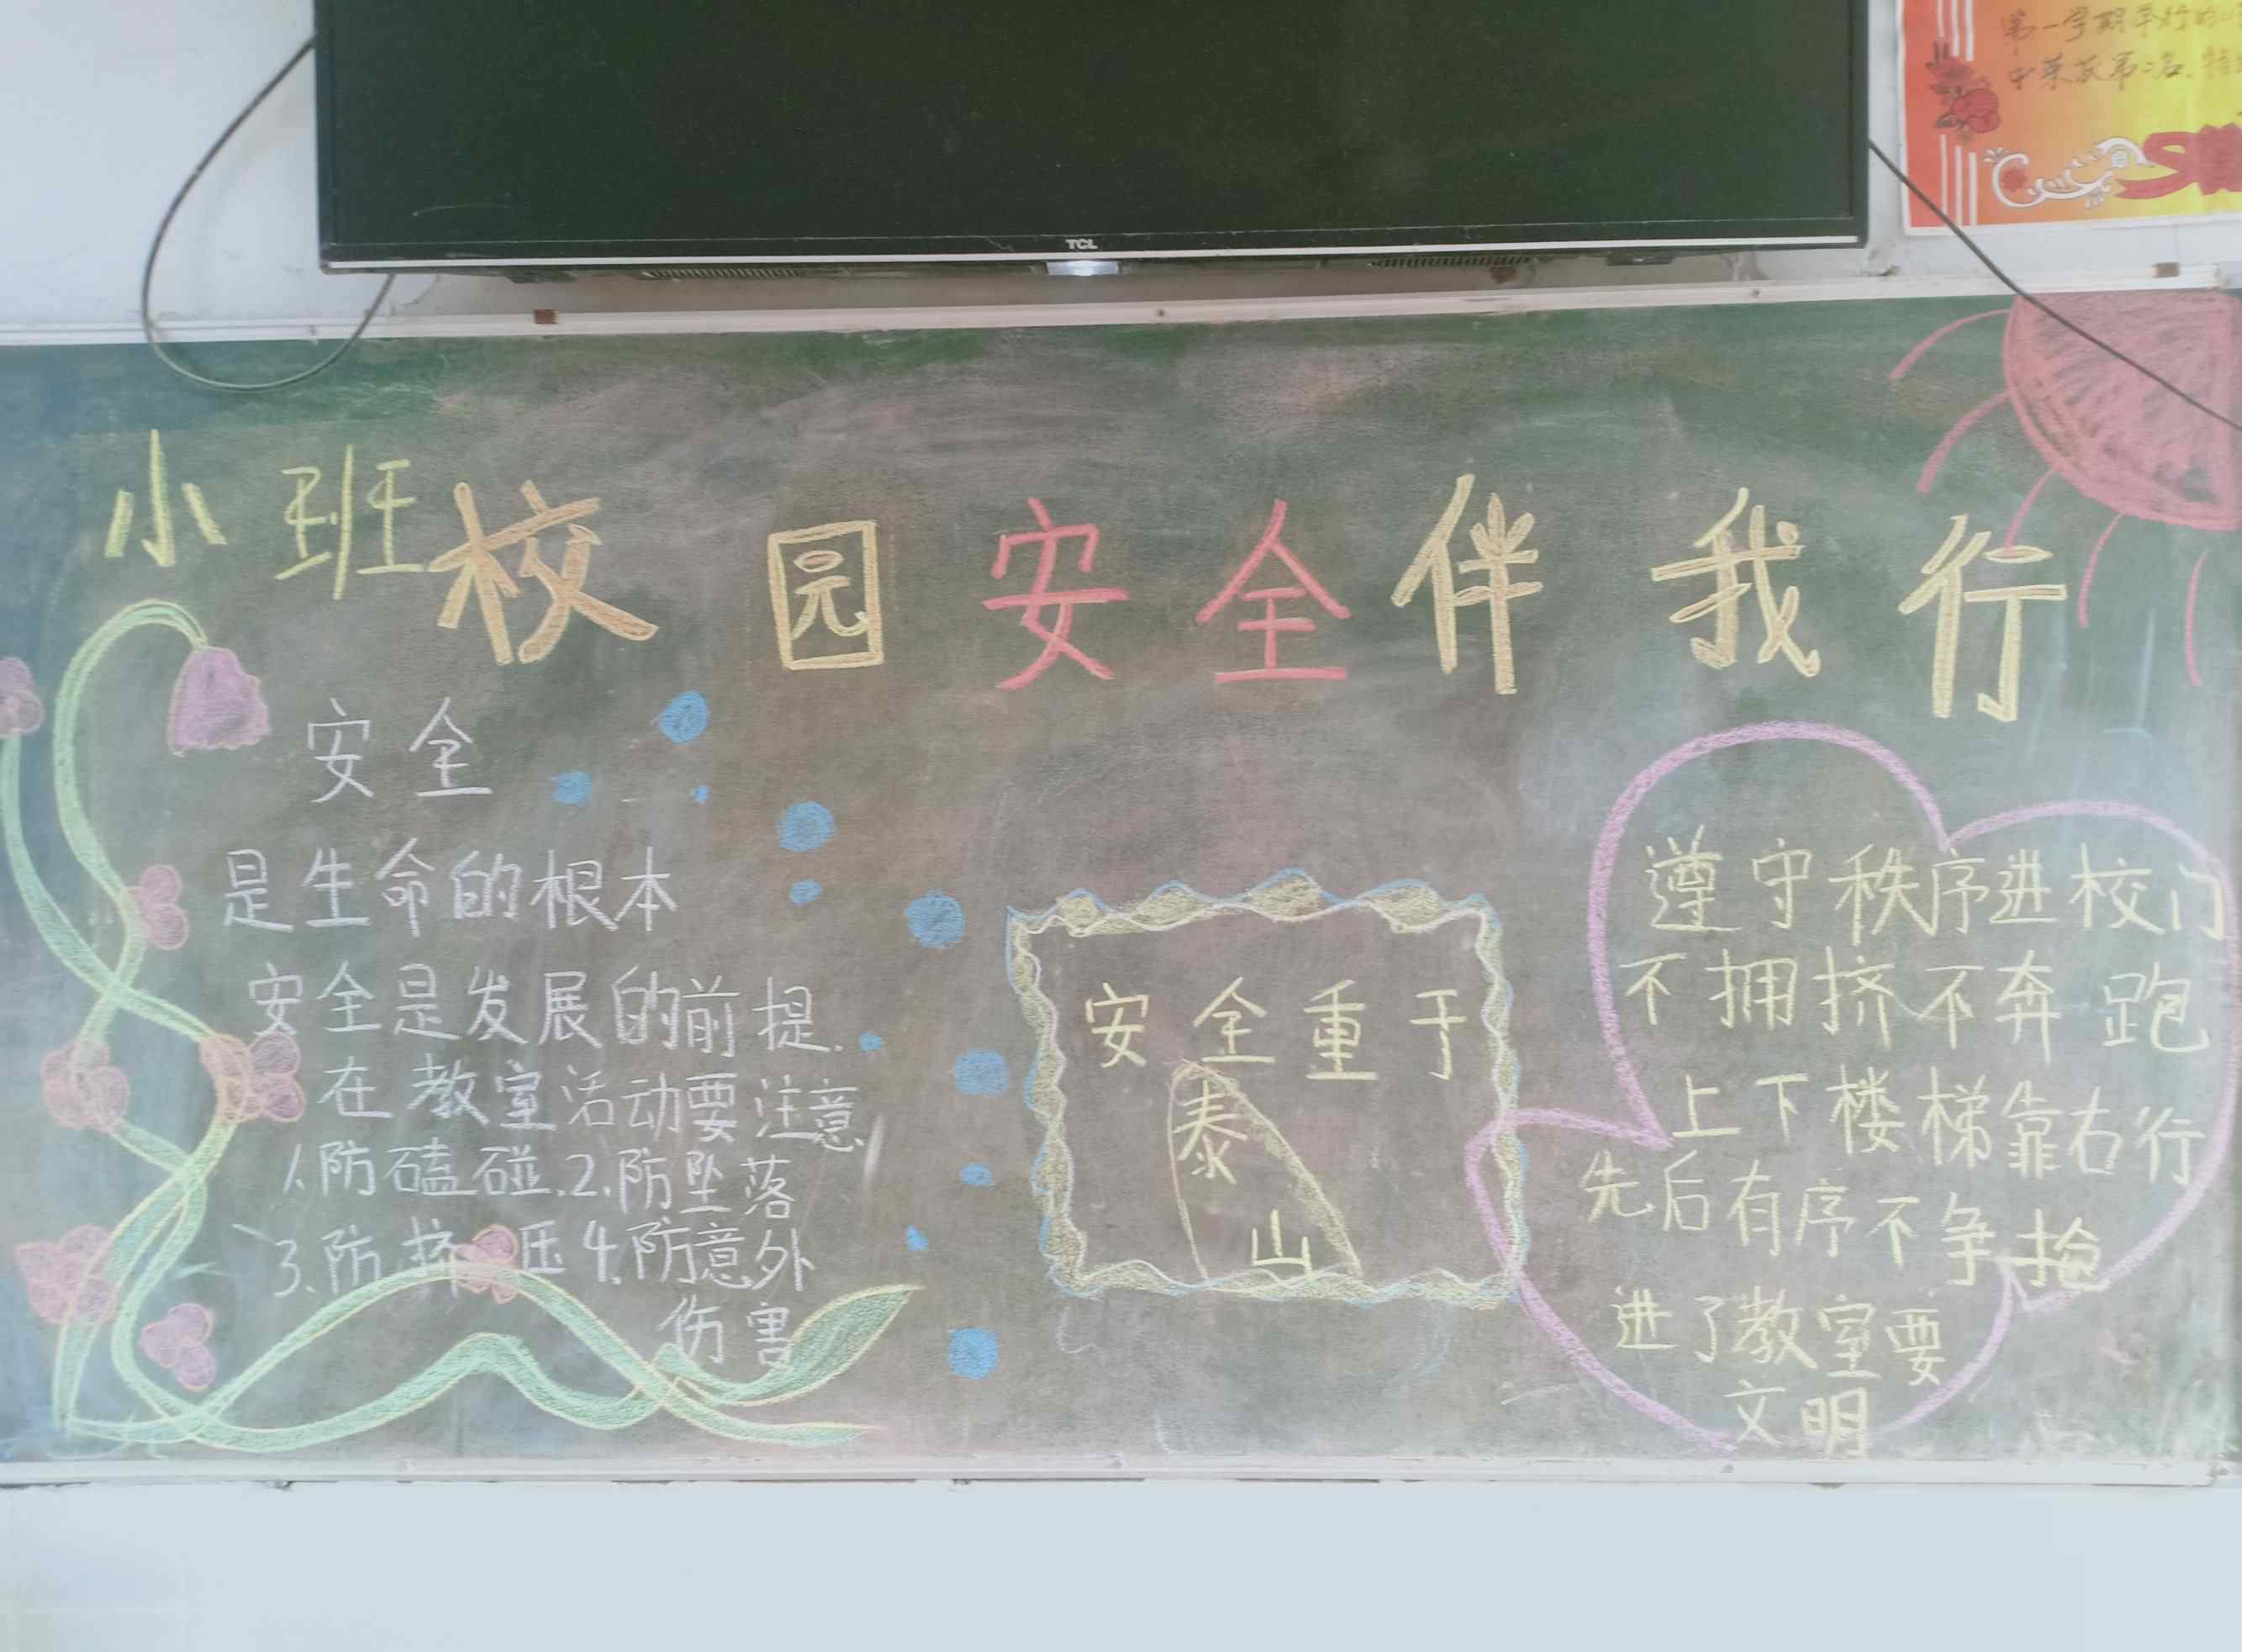 第一学期举行的
中荣获第二名.特
TCL
小班 校园安全伴我行
安全
是生命的根本
安全是发展的前提.
在教室活动要注意
1.防磕碰.2.防坠落
3.防挤压4.防意外
伤害
安全重于
泰
山
遵守秩序进校门
不拥挤不奔跑
上下楼梯靠右行
先后有序不争抢
进了教室要
文明